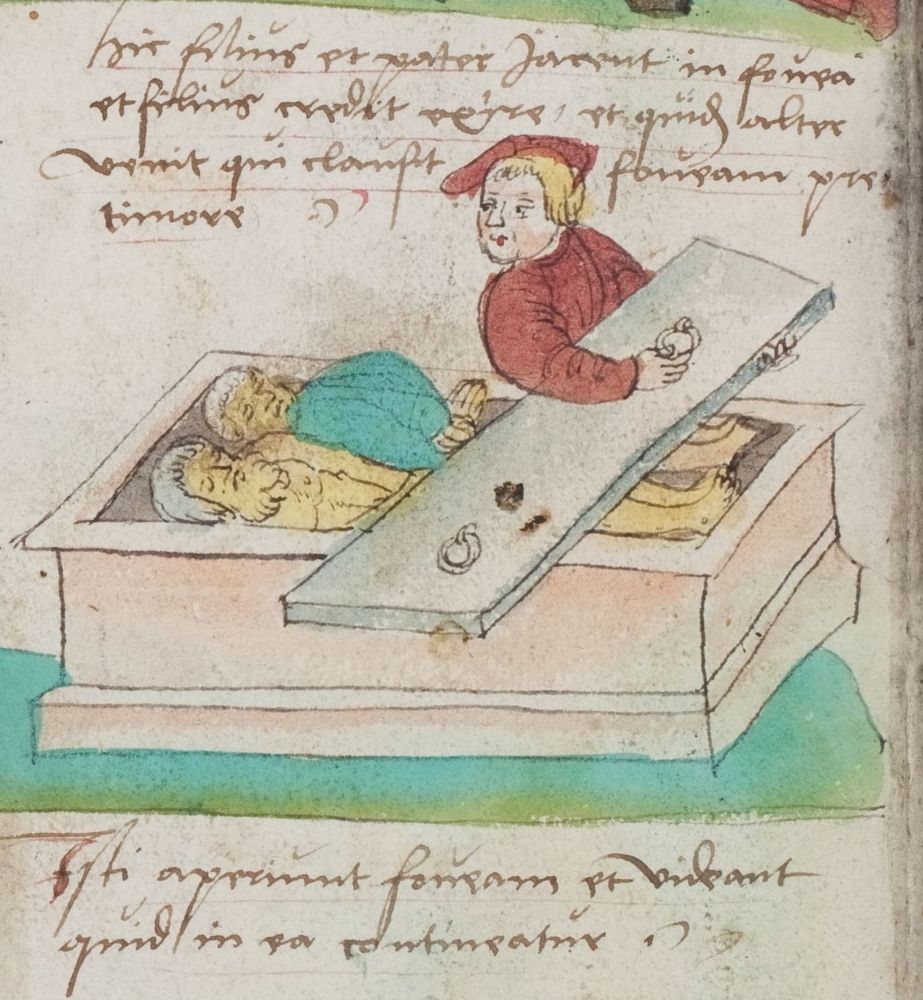 Hic filius et pater Jacent in fovea
et filius credit exire, et quidam alter
venit qui clausit foveam pre
timore
Isti aperiunt foveam et videant
quid in ea contineatur